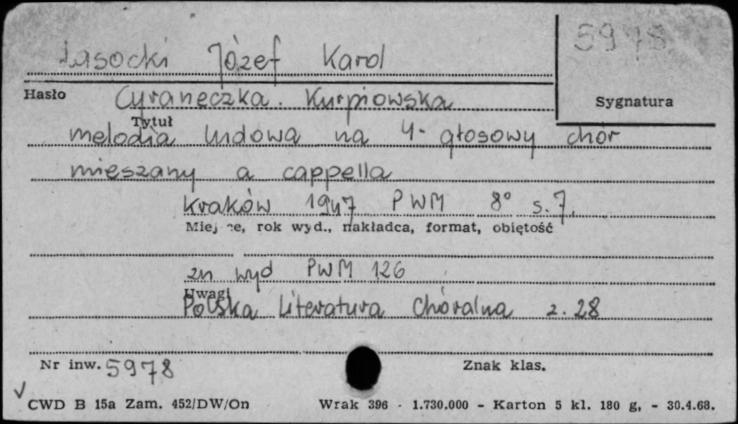 Łasocki Józef Karol
5978
Hasło
Cyraneczka. Kurpiowska
Sygnatura
Tytuł
melodia ludowa na 4-głosowy chór
mieszany a cappella
Kraków 1947 PWM 8° s. 7.
Miejsce, rok wyd., nakładca, format, objętość
zn wyd PWM 126
Uwagi
Polska Literatura Chóralna z. 28
Nr inw. 5978
Znak klas.
CWD B 15a Zam. 452/DW/On Wrak 396 - 1.730.000 - Karton 5 kl. 180 g, - 30.4.68.